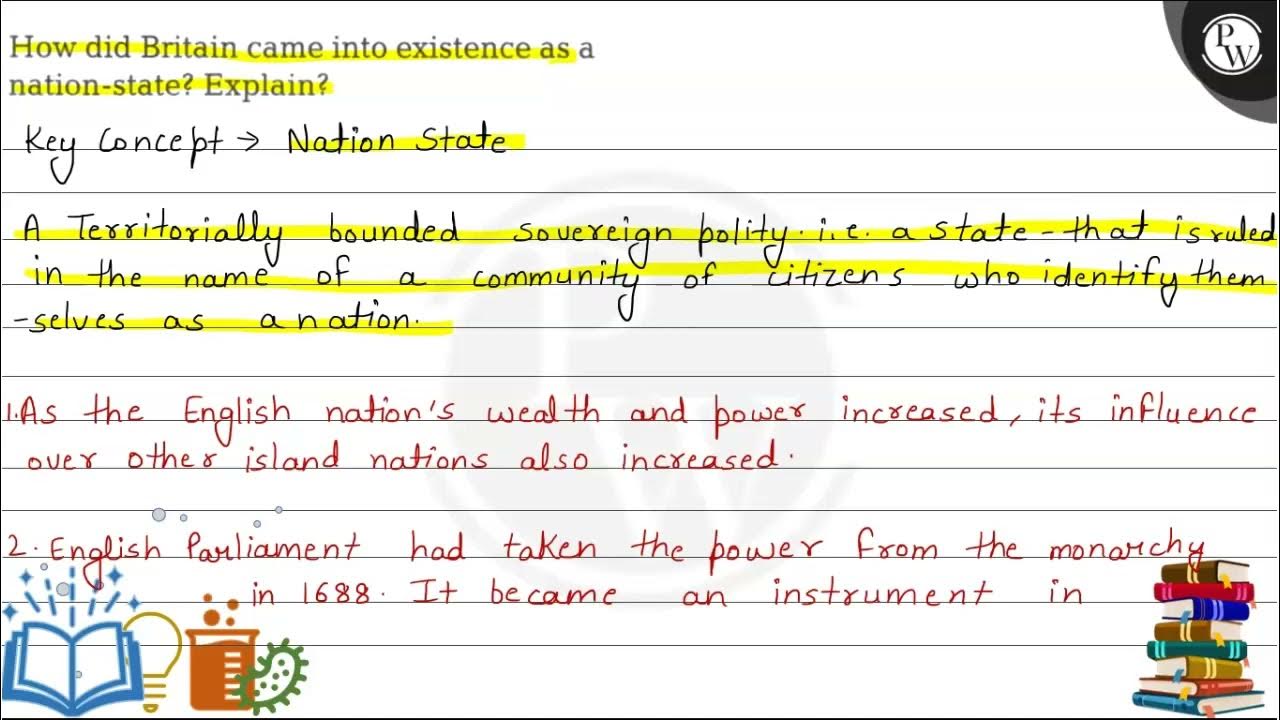 How did Britain came into existence as a
nation-state? Explain?
PW
Key Concept → Nation State
A Territorially bounded sovereign polity. i.e. a state - that is ruled
in the name of a community of citizens who identify them
-selves as a nation.
1. As the English nation's wealth and power increased, its influence
over other island nations also increased.
2. English Parliament had taken the power from the monarchy
in 1688. It became an instrument in